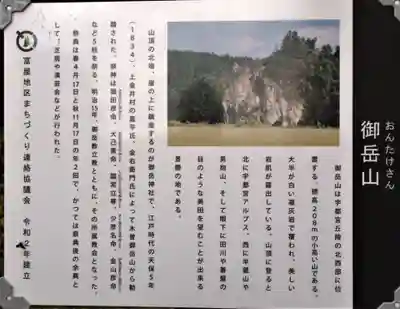 おんたけさん
御岳山
御岳山は宇都宮丘陵の北西部に位
置する、標高208mの小高い山である。
大半が白い凝灰岩で覆われ、美しい
岩肌が露出している。山頂に登ると
北に宇都宮アルプス、西に半蔵山や
男抱山、そして眼下に田川や碁盤の
目のような美田を望むことが出来る
景勝の地である。
山頂の北端、崖の上に鎮座するのが御岳神社で、江戸時代の天保5年
(1834)、上金井村の嘉平氏、金右衛門氏によって木曽御岳山から勧
請された。祭神は猿田彦命、大己貴命、國常立尊、少彦名命、金山彦命
など5柱を祭る。明治15年、御岳教立教とともに、その所属教会となった。
祭典は春4月17日と秋11月17日の年2回で、かつては祭典後の余興と
して、芝居や演芸会などが行われた。
富屋地区まちづくり連絡協議会 令和2年建立